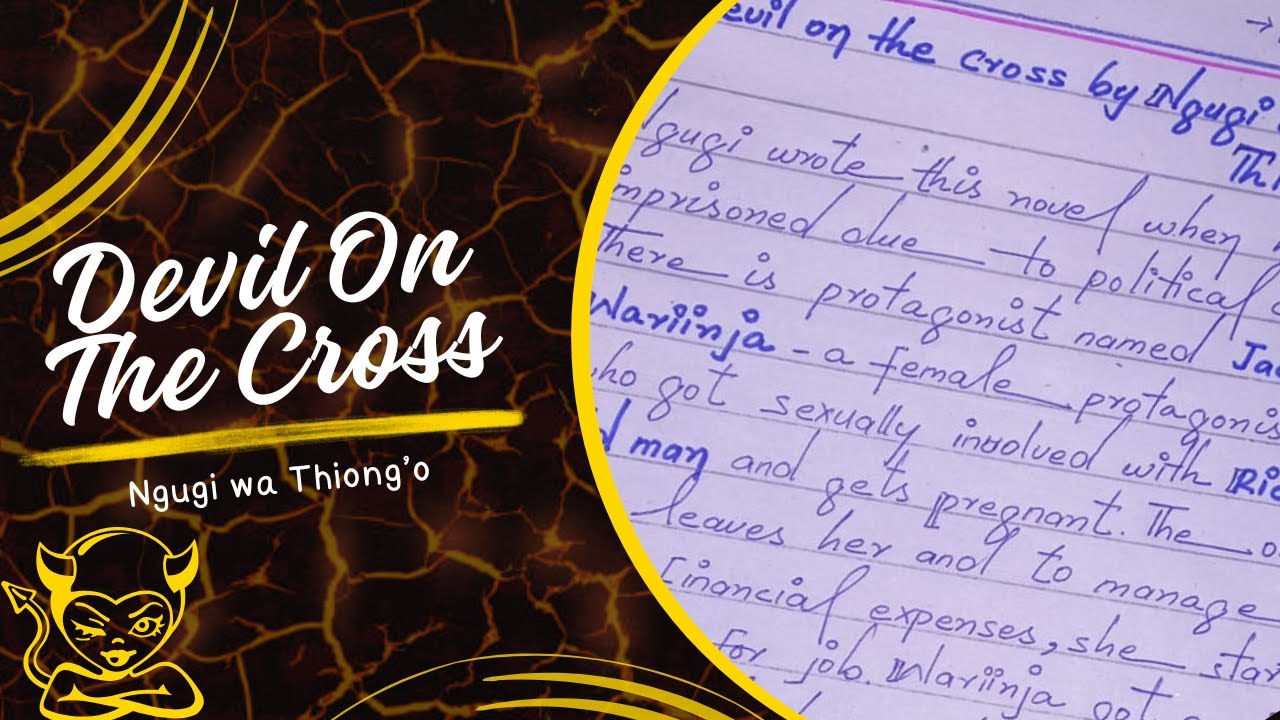 Devil On
The Cross
Ngugi wa Thiong'o
evil on the cross by Ngugi
Thi
Ngugi wrote this novel when
imprisoned due to political
There is protagonist named Jac
Wariinja - a female protagonis
who got sexually involved with Ric
man and gets pregnant. The o
leaves her and to manage
financial expenses, she star
for job. Wariinja got